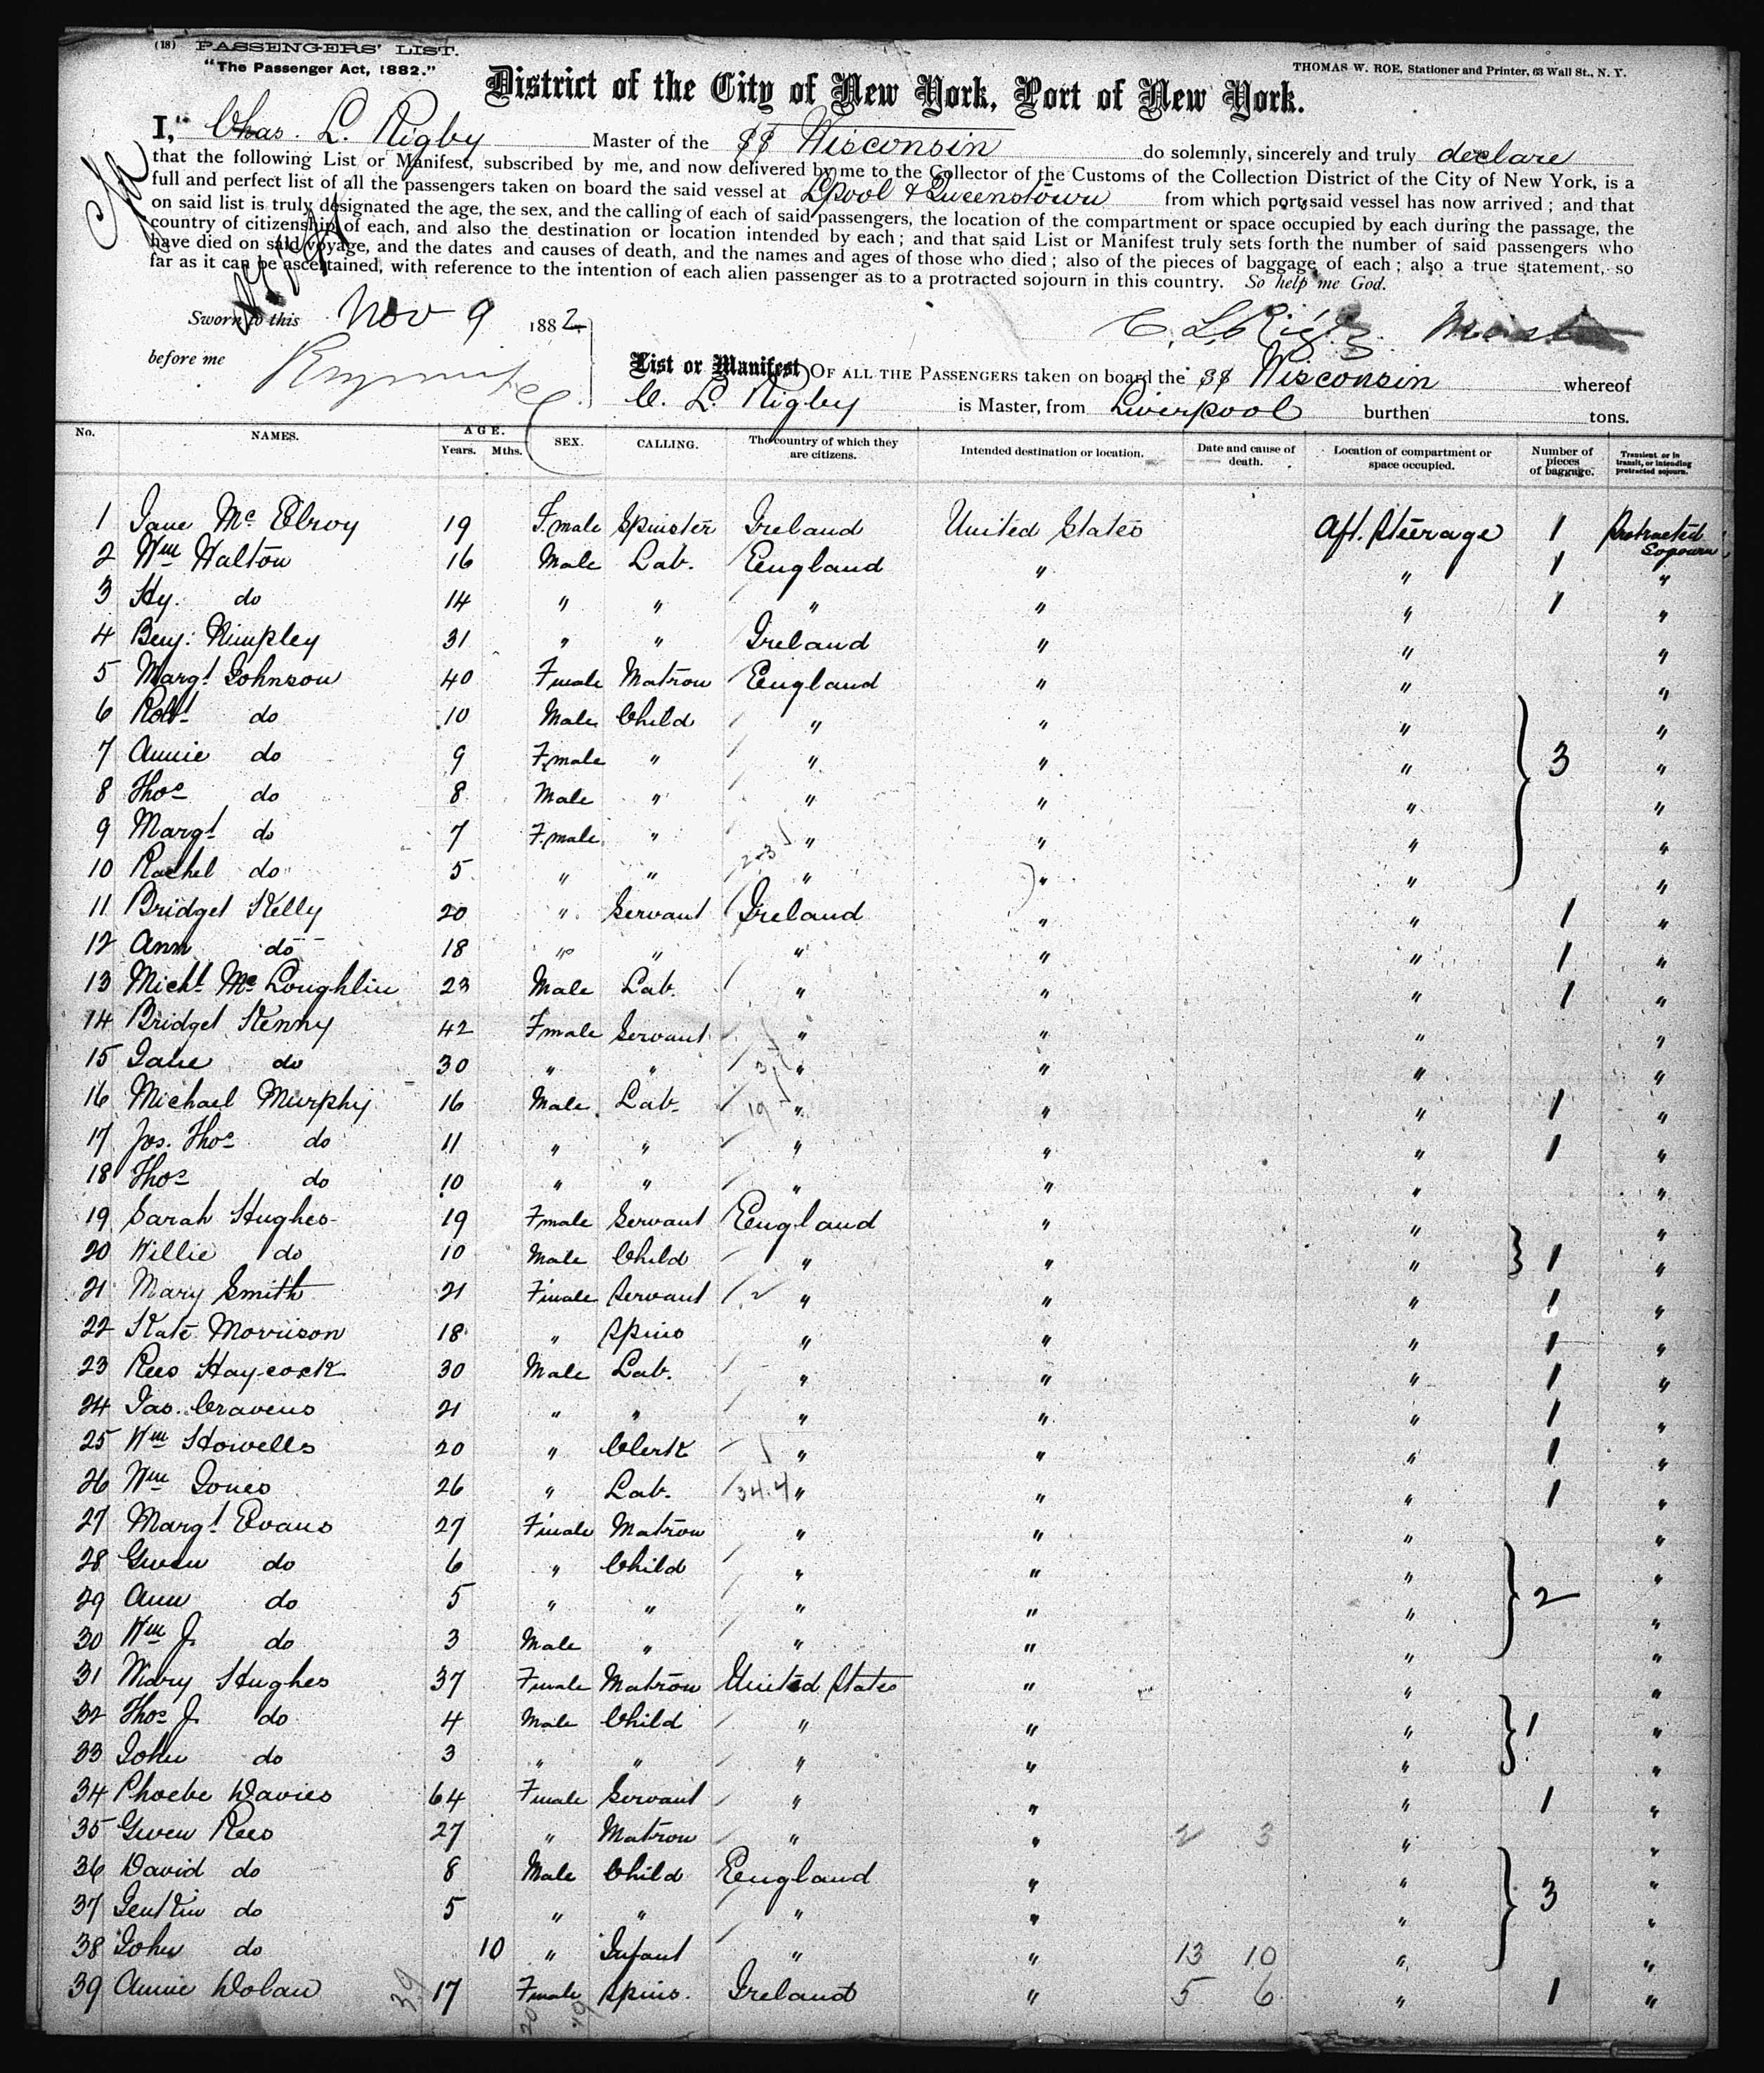 (18) PASSENGERS' LIST.
"The Passenger Act, 1882."
THOMAS W. ROE, Stationer and Printer, 63 Wall St., N. Y.
District of the City of New York, Port of New York.
I, Chas. L. Rigby Master of the SS Wisconsin do solemnly, sincerely and truly declare
that the following List or Manifest, subscribed by me, and now delivered by me to the Collector of the Customs of the Collection District of the City of New York, is a
full and perfect list of all the passengers taken on board the said vessel at Lpool & Queenstown from which ports said vessel has now arrived; and that
on said list is truly designated the age, the sex, and the calling of each of said passengers, the location of the compartment or space occupied by each during the passage, the
country of citizenship of each, and also the destination or location intended by each; and that said List or Manifest truly sets forth the number of said passengers who
have died on said voyage, and the dates and causes of death, and the names and ages of those who died; also of the pieces of baggage of each; also a true statement, so
far as it can be ascertained, with reference to the intention of each alien passenger as to a protracted sojourn in this country. So help me God.
Sworn to this Nov 9 1882 C. L. Rigby Master
before me
List or Manifest OF ALL THE PASSENGERS taken on board the SS Wisconsin whereof
C. L. Rigby is Master, from Liverpool burthen tons.
No. NAMES. AGE. Years. Mths. SEX. CALLING. The country of which they are citizens. Intended destination or location. Date and cause of death. Location of compartment or space occupied. Number of pieces of baggage. Transient or in transit, or intending protracted sojourn.
1 Jane McElroy 19 Female Spinster Ireland United States Aft. Steerage 1 Protracted Sojourn
2 Wm Walton 16 Male Lab. England " " 1 "
3 Hy. do 14 " " " " " 1 "
4 Benj: Nimpley 31 " " Ireland " " "
5 Margt Johnson 40 Female Matron England " " "
6 Robt do 10 Male Child " " " "
7 Annie do 9 Female " " " " 3 "
8 Thos do 8 Male " " " " "
9 Margt do 7 Female " " " " "
10 Rachel do 5 " " " " " "
11 Bridget Kelly 20 " Servant Ireland " " 1 "
12 Ann do 18 " " " " " 1 "
13 Michl McLoughlin 23 Male Lab. " " " 1 "
14 Bridget Kenny 42 Female Servant " " " "
15 Jane do 30 " " " " " "
16 Michael Murphy 16 Male Lab. " " " 1 "
17 Jos. Thos do 11 " " " " " 1 "
18 Thos do 10 " " " " " "
19 Sarah Hughes 19 Female Servant England " " "
20 Willie do 10 Male Child " " " 1 "
21 Mary Smith 21 Female Servant " " " 1 "
22 Kate Morrison 18 " Spins " " " 1 "
23 Rees Haycock 30 Male Lab. " " " 1 "
24 Jas. Cravens 21 " " " " " 1 "
25 Wm Howells 20 " Clerk " " " 1 "
26 Wm Jones 26 " Lab. " " " 1 "
27 Margt Evans 27 Female Matron " " " "
28 Gwen do 6 " Child " " " "
29 Ann do 5 " " " " " 2 "
30 Wm J. do 3 Male " " " " "
31 Mary Hughes 37 Female Matron United States " " "
32 Thos J. do 4 Male Child " " " 1 "
33 John do 3 " " " " " "
34 Phoebe Davies 64 Female Servant " " " 1 "
35 Gwen Rees 27 " Matron " " 2 3 " "
36 David do 8 Male Child England " " "
37 Jenkin do 5 " " " " " 3 "
38 John do 10 " Infant " " 13 10 " "
39 Annie Dolan 39 17 Female Spins. Ireland " 5 6 " 1 "
20 19